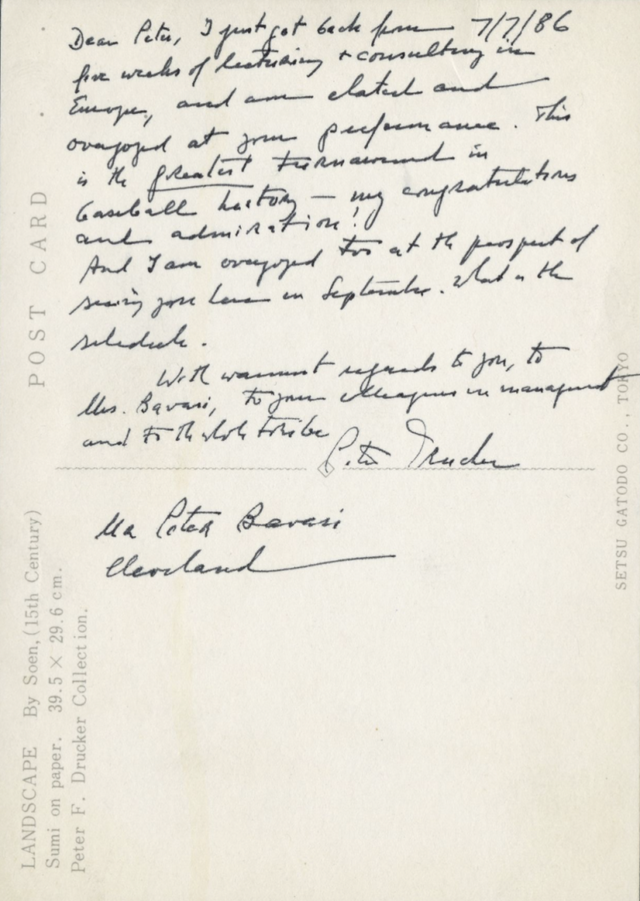 7/7/86
Dear Peter, I just got back from
five weeks of lecturing + consulting in
Europe, and am elated and
overjoyed at your performance. This
is the greatest turnaround in
baseball history — my congratulations
and admiration!
And I am overjoyed too at the prospect of
seeing you here in September. What is the
schedule.
With warmest regards to you, to
Mrs. Bavasi, to your colleagues in management
and to the whole tribe
Peter Drucker
Mr Peter Bavasi
Cleveland
POST CARD
LANDSCAPE By Soen, (15th Century)
Sumi on paper. 39.5 × 29.6 cm.
Peter F. Drucker Collection.
SETSU GATODO CO., TOKYO